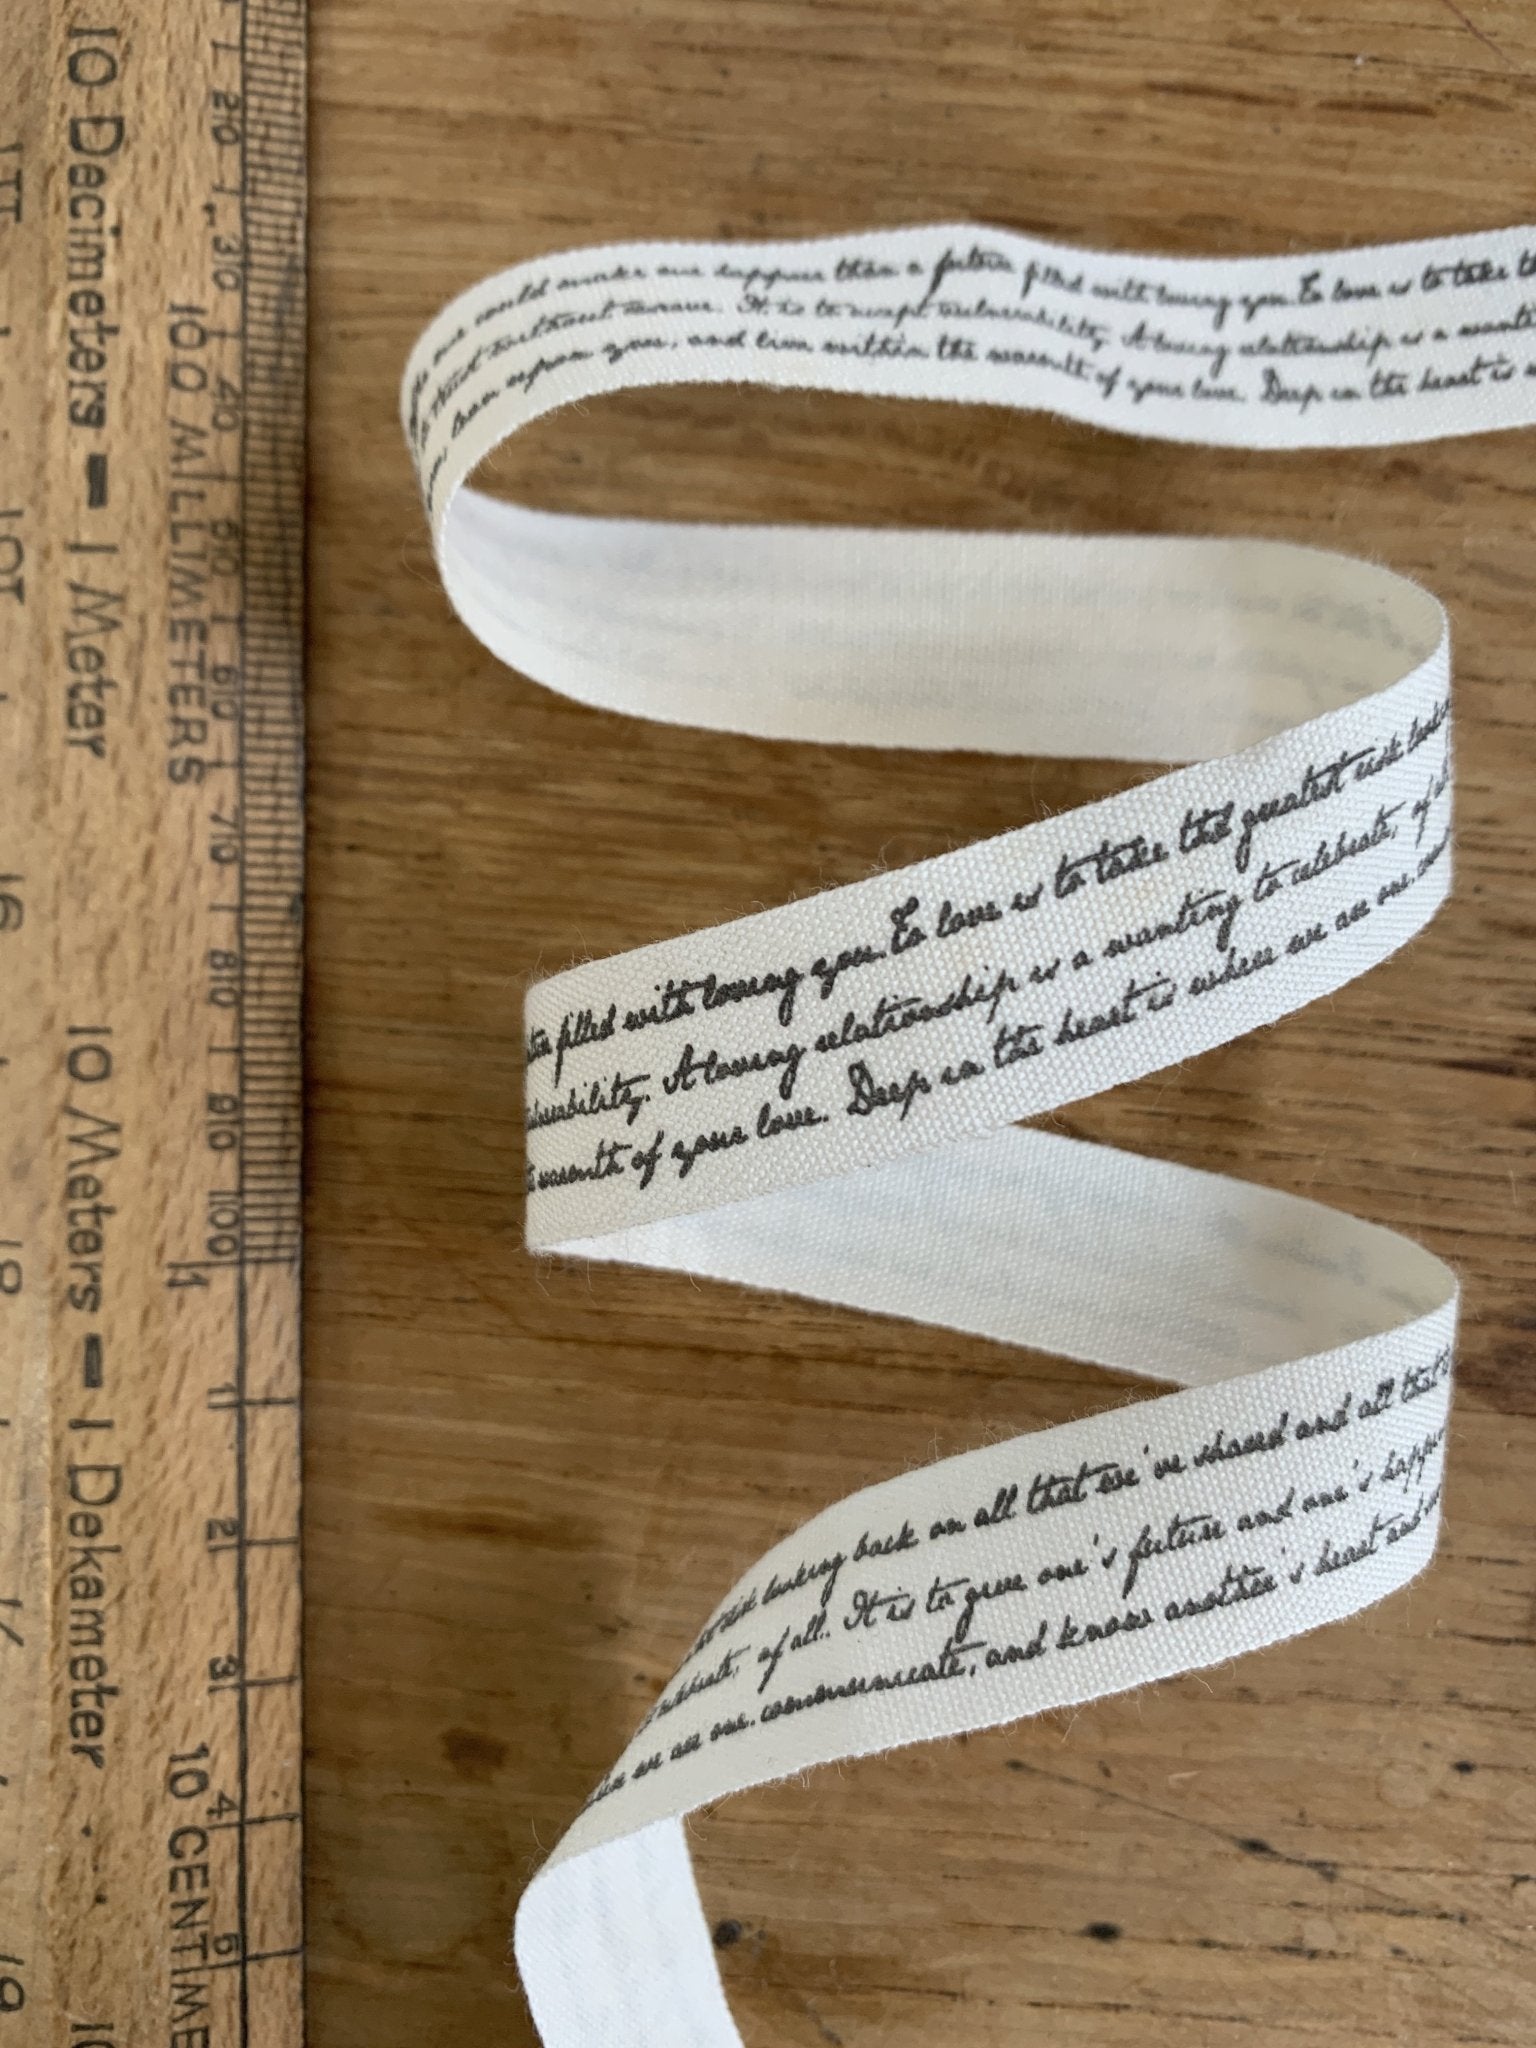 10 Decimeters = 1 Meter
10 Meters = 1 Dekameter
100 MILLIMETERS
10 CENTIME
20
30
40
50
60
70
80
90
100
1
11
21
31
4
5
16
18
19
one could make me happier than a future filled with loving you. To love is to take th
to trust without It is to accept vulnerability. A loving relationship is a wanti
lean upon you, and live within the warmth of your love. Deep in the heart is w
filled with loving you. To love is to take the greatest risk
A loving relationship is a wanting to celebrate, of
warmth of your love. Deep in the heart is where we are one.
looking back on all that we've shared and all that
of all. It is to give one's future and one's happ
we are one. communicate, and know another's heart and